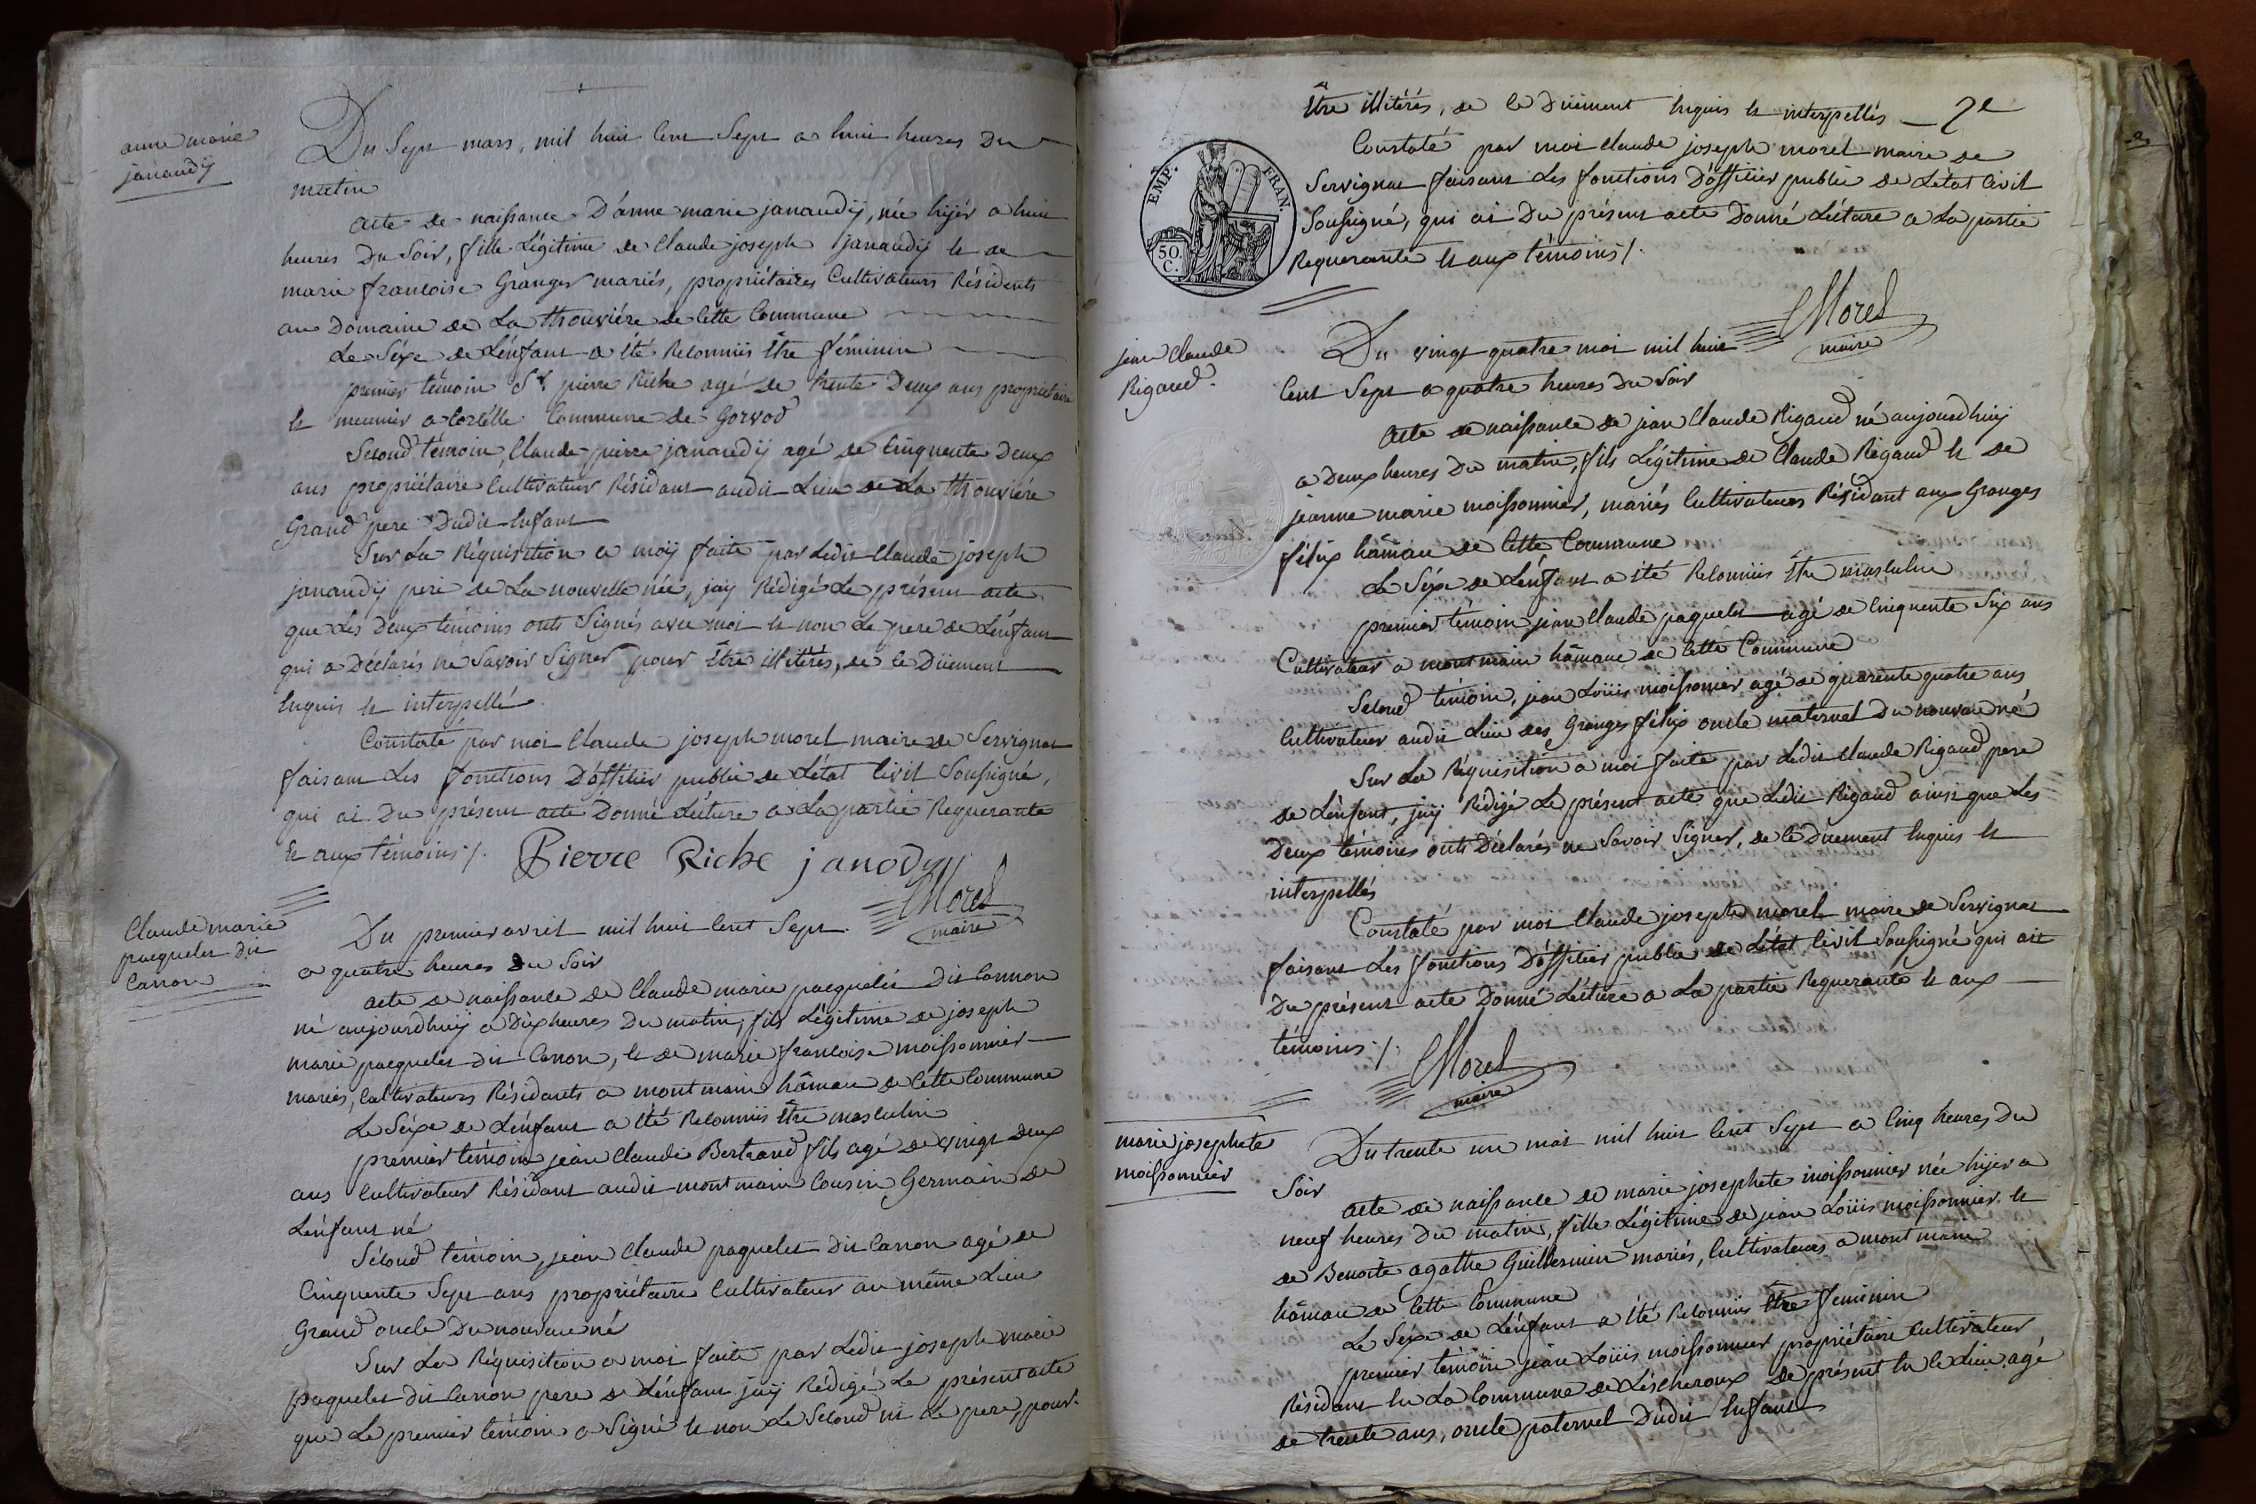 anne marie
janaudÿ
Du Sept mars, mil huit Cent Sept a huit heures Du
matin
acte de naissance D'anne marie janaudÿ, née hyér a huit
heures Du Soir, fille Légitime de Claude joseph janaudÿ et de
marie francoise Granger mariés, propriétaires Cultivateurs Résidents
au Domaine de La thouviére de Cétte Commune
Le Séxe de L'énfant a été Reconnüs Être féminin
premier témoin Sr. pierre Riche agé de trente Deux ans propriétaire
et meunier a Corcélle Commune de Gorvod
Second témoin, Claude pierre janaudÿ agé de Cinquente Deux
ans propriétaire Cultivateur Résidant audit Lieu de La thouviére
Grand pere Dudit Enfant
Sur La Réquisition a moÿ faite par Ledit Claude joseph
janaudÿ pere de La nouvelle née, jaÿ Rédigé Le présent acte
que Les Deux témoins onts Signés avec moi et non Le pere de L'énfant
qui a Déclarés ne Savoir Signer pour être illitérés, de ce Düement
Enquis et interpellé.
Constaté par moi Claude joseph morel maire de Servignat
faisant Les fonctions D'officier public de L'état Civil Soussigné,
qui ai Du présent acte Donné Lécture a La partie Requerante
Et aux témoins ./.
Pierre Riche janody
Morel
maire
Claude marie
pacquelet dit
Canon
Du premier avril mil huit Cent Sept
a quatre heures du Soir
acte de naissance de Claude marie pacquelet Dit Cannon
né aujourdhuÿ a Dix heures Du matin, fils Légitime de joseph
marie pacquelet dit Canon, et de marie francoise moissonnier
mariés, Cultivateurs Résidants a montmain hâmau de Cette Commune
Le Séxe de L'énfant a été Reconnüs être masculin
premier témoin jean Claude Bertrand fils agé de vingt deux
ans Cultivateur Résidant audit montmain Cousin Germain de
L'énfant né
Sécond témoin, jean Claude paquelet Dit Canon agé de
Cinquente Sept ans propriétaire Cultivateur au même Lieu
Grand oncle Du nouvau né
Sur La Réquisition a moi faite par Ledit joseph marie
paquelet dit Canon pere de L'énfant jaÿ Rédigé Le présent acte
que Le premier témoin a Signé et non Le Second ni Le pere, pour
2e
être illitérés, de ce Düement Enquis et interpellés
Constaté par moi Claude joseph morel maire de
Servignat faisant Les fonctions D'officier public de L'état Civil
Soussigné, qui ai Du présent acte Donné Lécture a La partie
Requerante et aux témoins ./.
EMP. FRAN.
50.
C.
Morel
maire
jean Claude
Rigaud.
Du vingt quatre mai mil huit
Cent Sept a quatre heures Du Soir
Acte de naissance de jean Claude Rigaud né aujourdhuÿ
a Deux heures Du matin, fils Légitime de Claude Rigaud et de
jeanne marie moissonnier, mariés Cultivateurs Résidant aux Granges
félix hâmau de Cette Commune
Le Séxe de L'énfant a été Reconnüs être masculin
premier témoin jean Claude paquelet agé de Cinquente Six ans
Cultivateur a montmain hâmau de Cette Commune
Second témoin, jean Loüis moissonnier agé de quarente quatre ans
Cultivateur audit Lieu des Granges félix oncle maternel Du nouvau né
Sur La Réquisition a moi faite par Ledit Claude Rigaud pere
de L'énfant, jaÿ Rédigé Le présent acte que Ledit Rigaud ainsi que Les
Deux témoins onts Déclarés ne Savoir Signer, de ce Düement Enquis et
interpellés
Constaté par moi Claude joseph morel maire de Servignat
faisant Les fonctions D'officier public de L'état Civil Soussigné qui ait
Du présent acte Donné Lécture a La partie Requerante et aux
témoins ./.
Morel
maire
marie josephete
moissonnier
Du trente un mai mil huit Cent Sept a Cinq heures Du
Soir
acte de naissance de marie josephete moissonnier née hyer a
neuf heures Du matin, fille Légitime de jean Loüis moissonnier et
de Benoite agathe Guillermin mariés, Cultivateurs a montmain
hâmau de Cette Commune
Le Séxe de L'énfant a été Reconnüs être feminin
premier témoin jean Loüis moissonnier propriétaire Cultivateur
Résidant En La Commune de Léscheroux de présent En Ce Lieu agé
de trente ans, oncle paternel Dudit Enfant